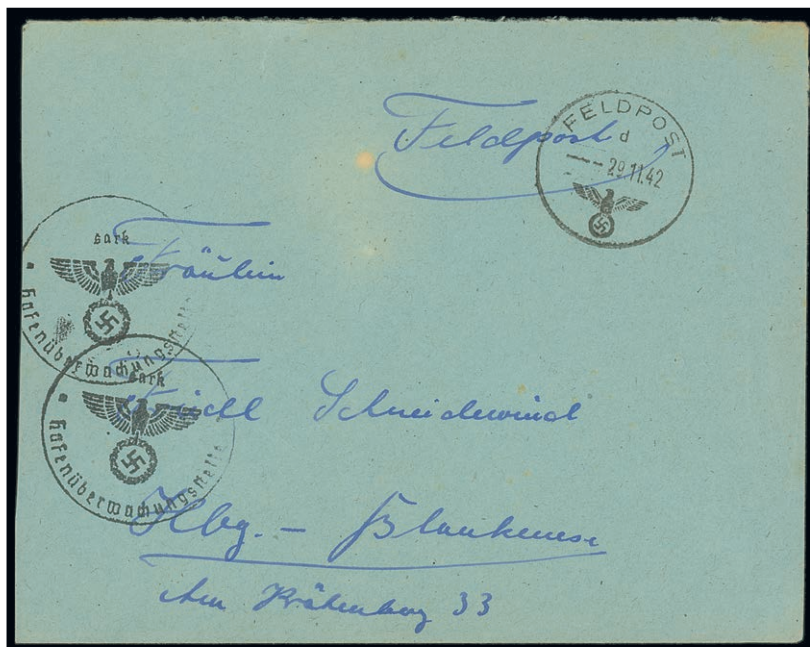 Feldpost
FELDPOST
d
29.11.42
Fräulein
Sark
Hafenüberwachungsstelle
Sark
Hafenüberwachungsstelle
Friedl Schneidewind
Hbg. - Blankenese
Am Krähenberg 33